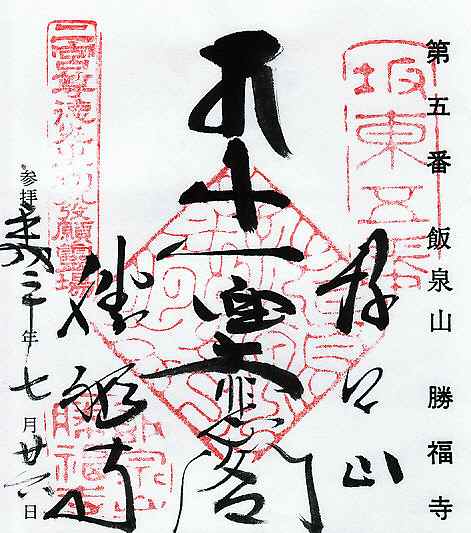 第五番 飯泉山 勝福寺
坂東五番
飯泉山
十一面大悲閣
勝福寺
二宮尊徳 発願霊場
参拝
三年七月廿六日